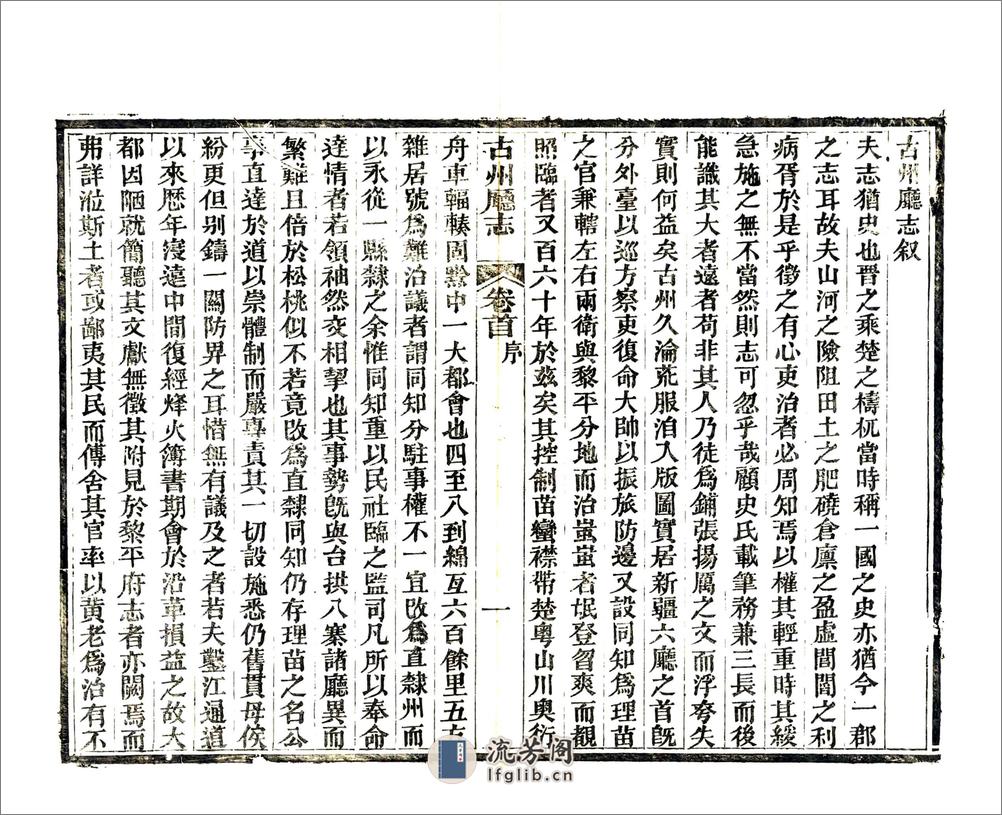 古州廳志叙
夫志猶史也晉之乘楚之檮杌當時稱一國之史亦猶今一郡
之志耳故夫山河之險阻田土之肥磽倉廩之盈虛閭閻之利
病胥於是乎徵之有心吏治者必周知焉以權其輕重時其緩
急施之無不當然則志可忽乎哉顧史氏載筆務兼三長而後
能識其大者遠者苟非其人乃徒爲鋪張揚厲之文而浮夸失
實則何益矣古州久淪荒服洎入版圖實居新疆六廳之首旣
分外臺以巡方察吏復命大帥以振旅防邊又設同知爲理苗
之官兼轄左右兩衛與黎平分地而治蚩蚩者氓登曶爽而覩
照臨者又百六十年於茲矣其控制苗蠻襟帶楚粵山川奧衍
古州廳志
卷首
序
一
舟車輻輳固黔中一大都會也四至八到綿亙六百餘里五方
雜居號爲難治議者謂同知分駐事權不一宜改爲直隸州而
以永從一縣隸之余惟同知重以民社臨之監司凡所以奉命
達情者若領袖然交相挈也其事勢旣與台拱八寨諸廳異而
繁難且倍於松桃似不若竟改爲直隸同知仍存理苗之名公
事直達於道以崇體制而嚴專責其一切設施悉仍舊貫毋俟
紛更但别鑄一關防畀之耳惜無有議及之者若夫鑿江通道
以來歷年寖遠中間復經烽火簿書期會於沿革損益之故大
都因陋就簡聽其文獻無徵其附見於黎平府志者亦闕焉而
弗詳涖斯土者或鄙夷其民而傳舍其官率以黄老爲治有不
流芳阁
lfglib.cn